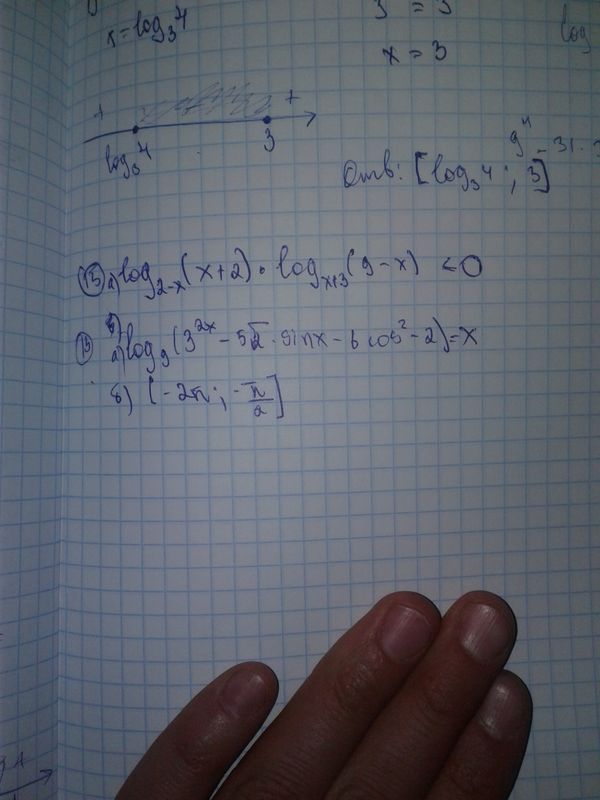 x = log₃4
3 = 3
x = 3
log
+ +
log₃4 3
9⁴ - 31 · 3
Отв: [log₃4 ; 3]
(15) a) log₂₋ₓ(x+2) · logₓ₊₃(9-x) < 0
(13) a) log₉(3²ˣ - 5√2 · sinx - 6 cos² - 2) = x
б) [-2π ; -π/2]